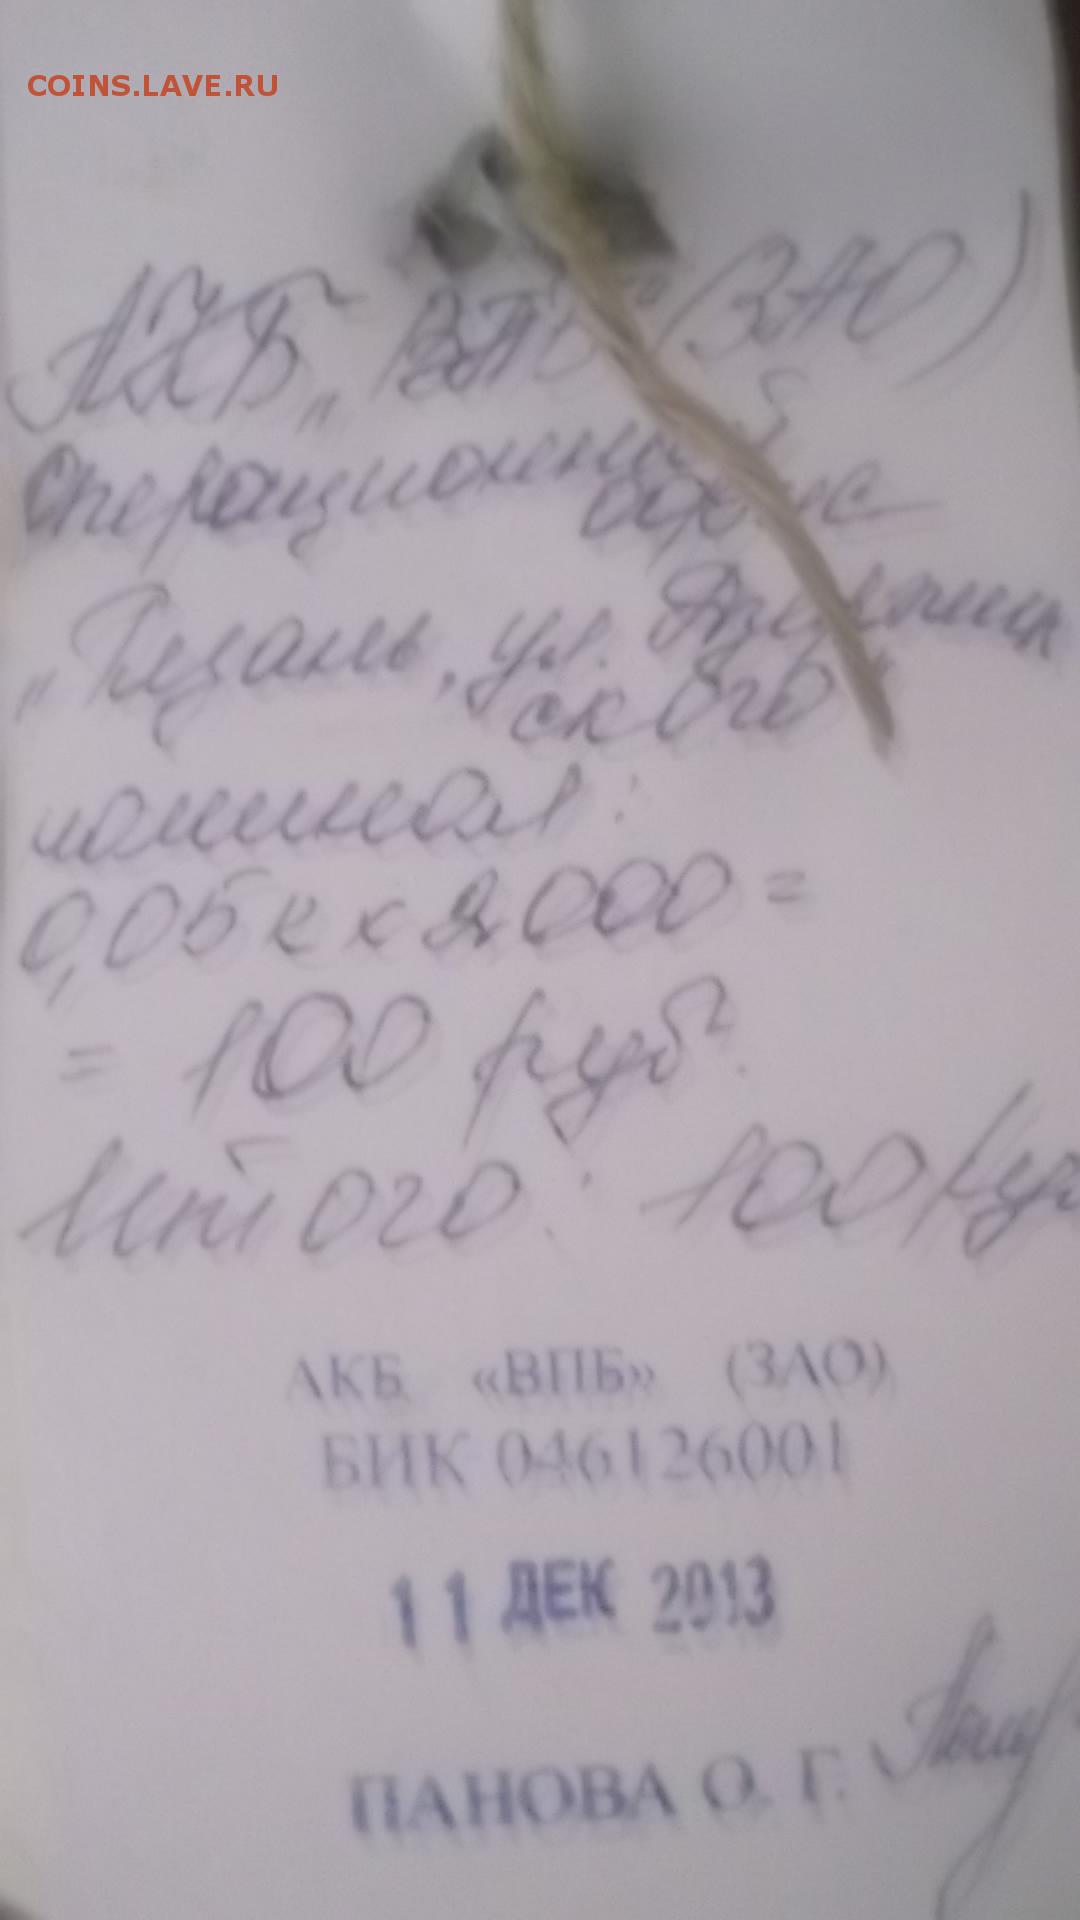 COINS.LAVE.RU
АКБ „ВПБ" (ЗАО)
Операционный
офис
„Рязань, ул. Дзержин
ского"
номинал:
0,05 к х 2000 =
= 100 руб.
Итого: 100 руб
АКБ «ВПБ» (ЗАО)
БИК 046126001
11 ДЕК 2013
ПАНОВА О. Г.